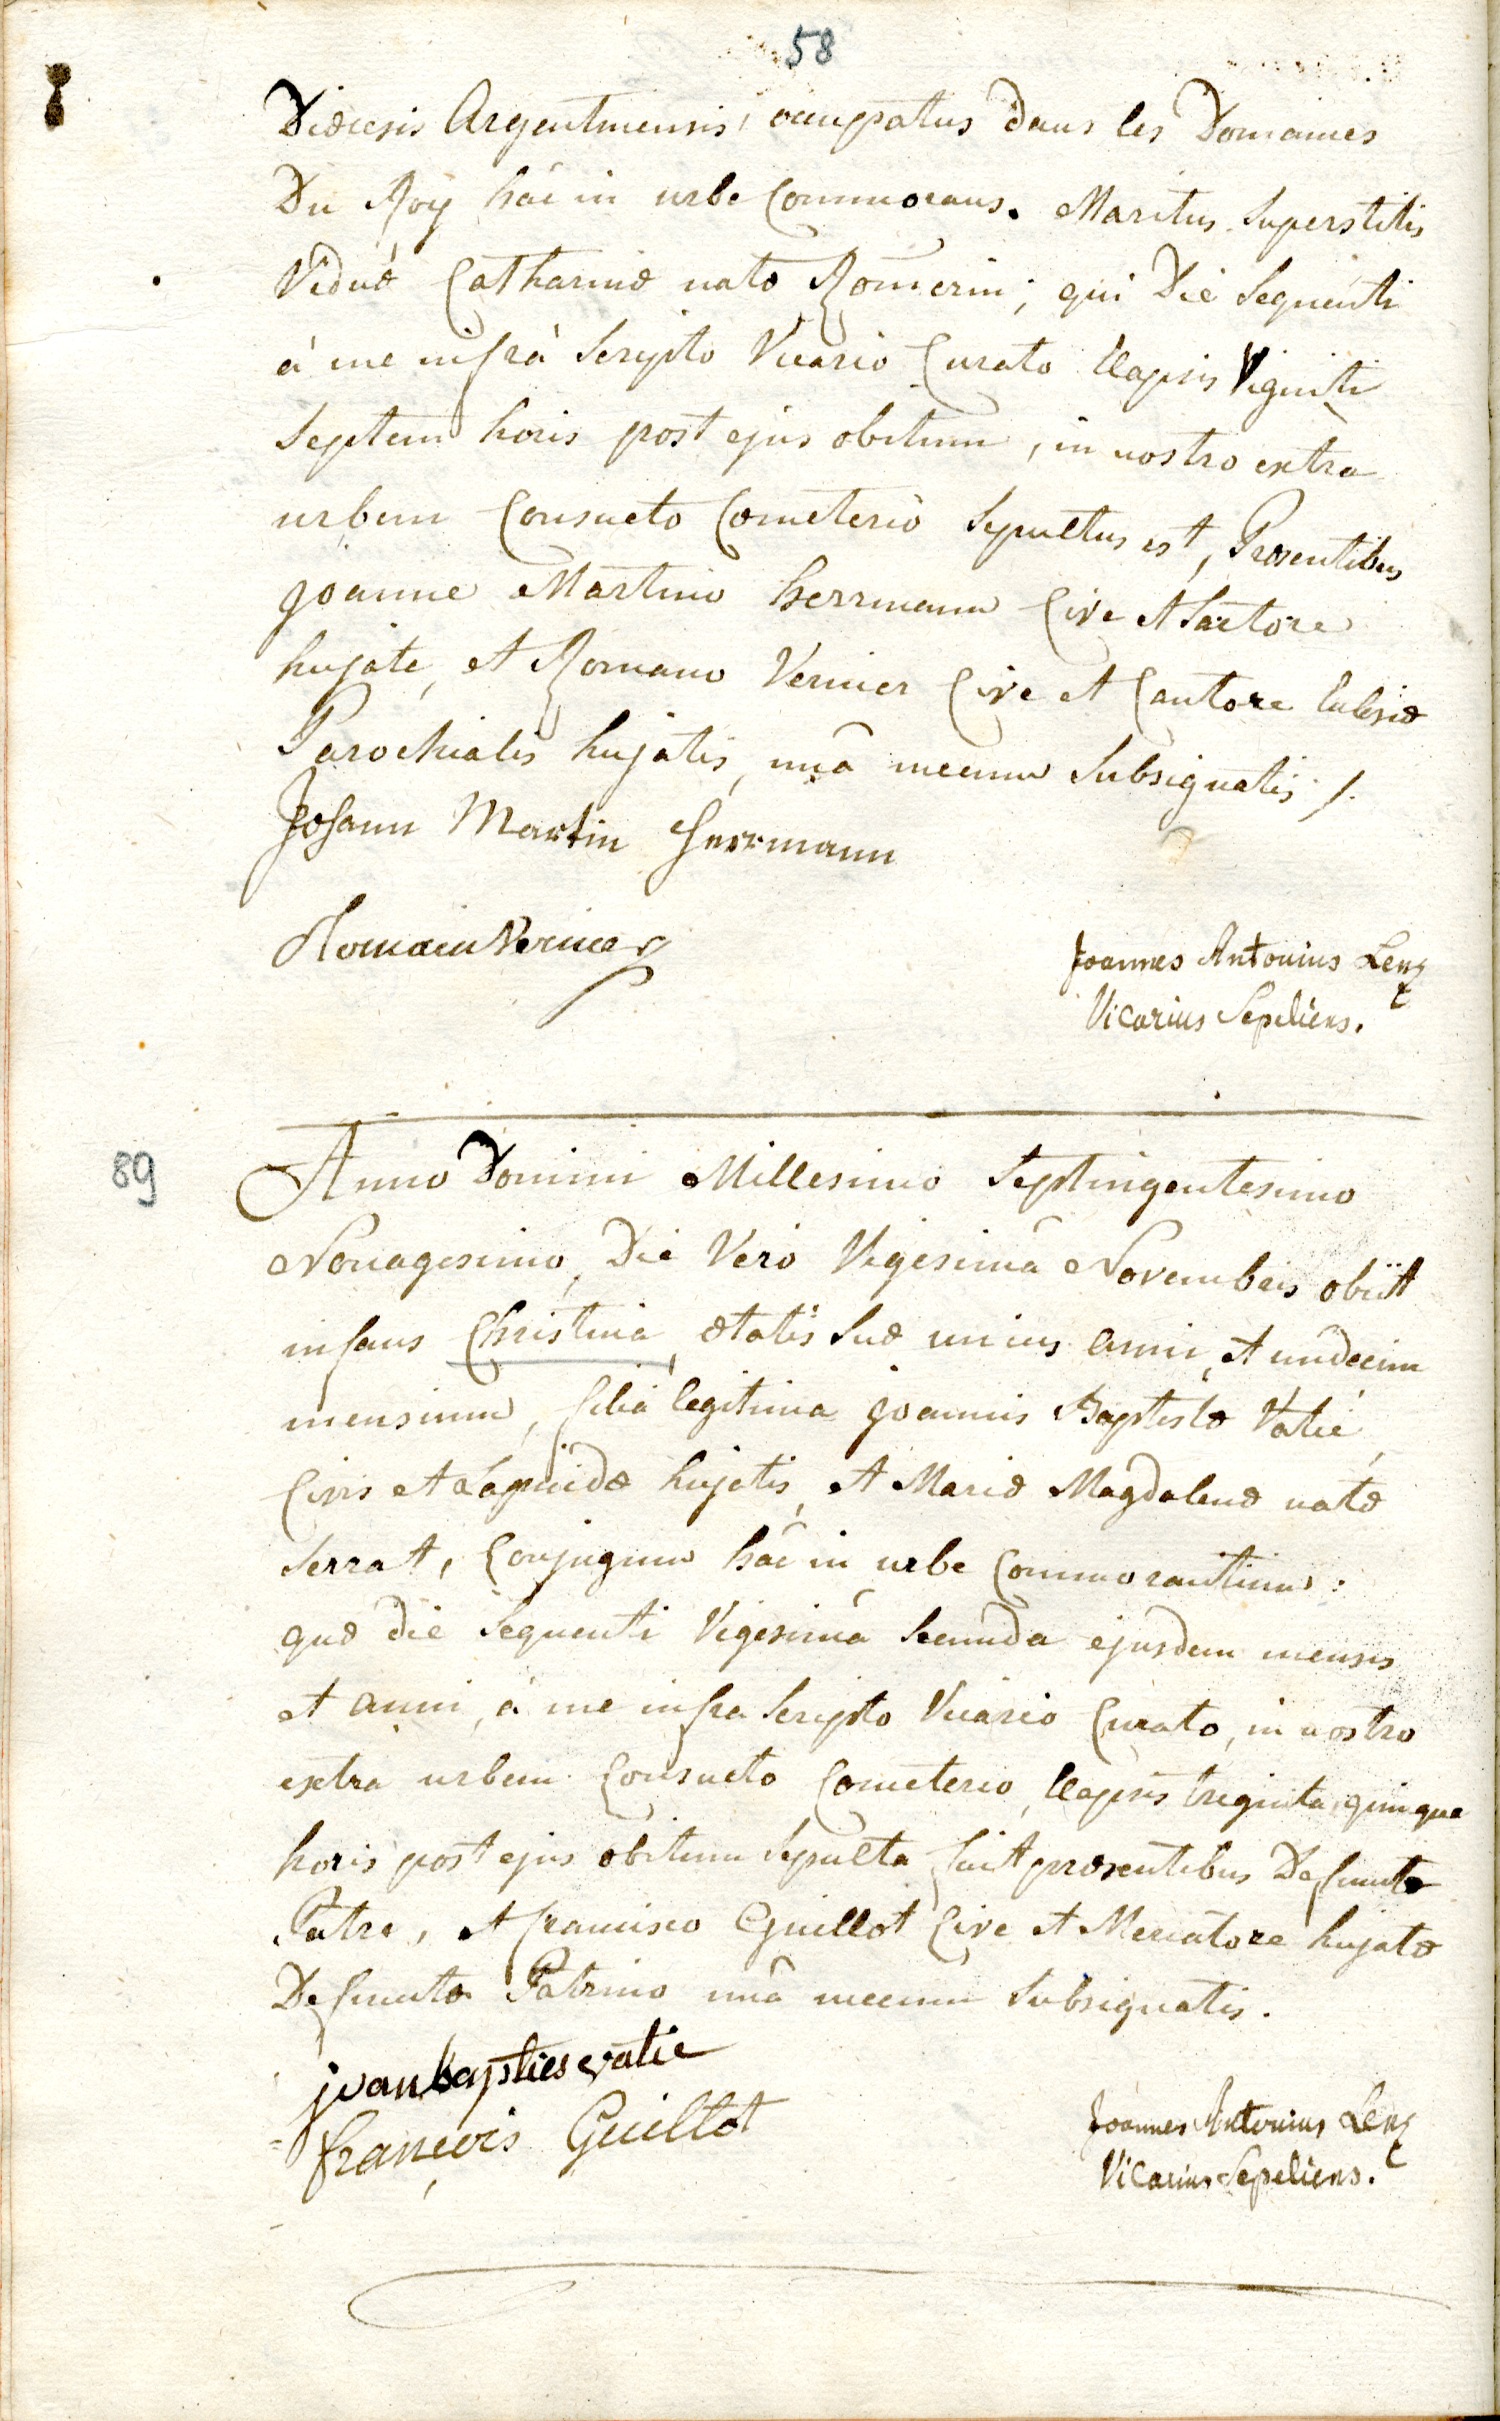 58
Diœcesis Argentinensis, occupatus dans les Domaines
Du Roy hâc in urbe Commorans. Maritus Superstitis
Viduæ Catharinæ natæ Römerin; qui Die Sequenti
à me infrà Scripto Vicario Curato elapsis Viginti
Septem horis post ejus obitum, in nostro extra
urbem Consueto Cœmeterio Sepultus est, Præsentibus
joanne Martino herrmann Cive et Sartore
hujate, et Romano Vernier Cive et Cantore Eclesiæ
Parochialis hujatis, unâ mecum Subsignatis ./.
Johann Martin Herrmann
Romain Vernier
Joannes Antonius Lenz
Vicarius Sepeliens.
89
Anno Domini Millesimo Septingentesimo
Nonagesimo, Die Vero Vigesimâ Novembris obiit
infans Christina, ætatis Suæ unius anni, et undecim
mensium, filia legitima joannis Baptistæ Vatié,
Civis et Lapicidæ hujatis, et Mariæ Magdalenæ natæ
Serrat, Conjugum hâc in urbe Commorantium:
quæ die Sequenti Vigesimâ Secunda ejusdem mensis
et anni, à me infra Scripto Vicario Curato, in nostro
extra urbem Consueto Cœmeterio, elapsis triginta quinque
horis post ejus obitum Sepulta fuit præsentibus Defunctæ
Patre, et francisco Guillot Cive et Mercatore hujate
Defunctæ Patrino unâ mecum Subsignatis.
jvan bapties vatie
françois Guillot
Joannes Antonius Lenz
Vicarius Sepeliens.